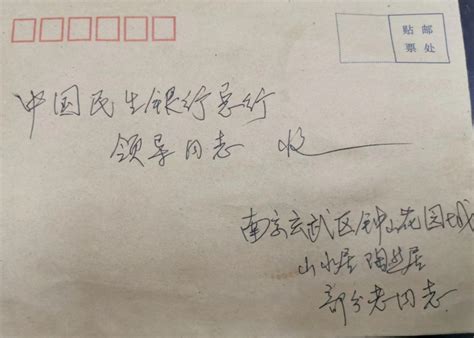 贴邮
票处
中国民生银行总行
领导同志 收
南京玄武区钟山花园城
山水居 陶然居
部分老同志